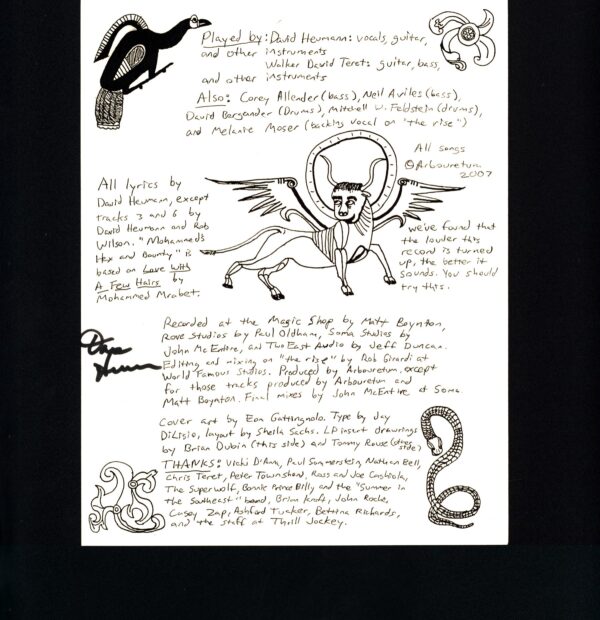 Played by: David Heumann: vocals, guitar,
and other instruments
Walker David Teret: guitar, bass,
and other instruments
Also: Corey Allender (bass), Neil Aviles (bass),
David Bergander (Drums), Mitchell W. Feldstein (drums),
and Melanie Moser (backing vocal on "the rise")
All songs
© Arbouretum
2007
All lyrics by
David Heumann, except
tracks 3 and 6 by
David Heumann and Rob
Wilson. "Mohammed's
Hex and Bounty" is
based on Love With
A Few Hairs by
Mohammed Mrabet.
we've found that
the louder this
record is turned
up, the better it
sounds. You should
try this.
Recorded at the Magic Shop by Matt Boynton,
Rove Studios by Paul Oldham, Soma Studios by
John McEntire, and Two East Audio by Jeff Duncan.
Editing and mixing on "the rise" by Rob Girardi at
World Famous Studios. Produced by Arbouretum, except
for those tracks produced by Arbouretum and
Matt Boynton. Final mixes by John McEntire at Soma
Dave
Heumann
Cover art by Eon by Jay
DiLisio, layout by Sheila Sachs. LP insert drawings
by Brian Dubin (this side) and Tommy Rouse (other
side)
THANKS: Vicki D'Anna, Paul Summerstein, Nathan Bell,
Chris Teret, Peter Townshend, Ross and Joe
The Superwolf, Bonnie Prince Billy and the "Summer in
the Southeast" band, Brian Kraft, John Roche,
Casey Zap, Ashford Tucker, Bettina Richards,
and the staff at Thrill Jockey.